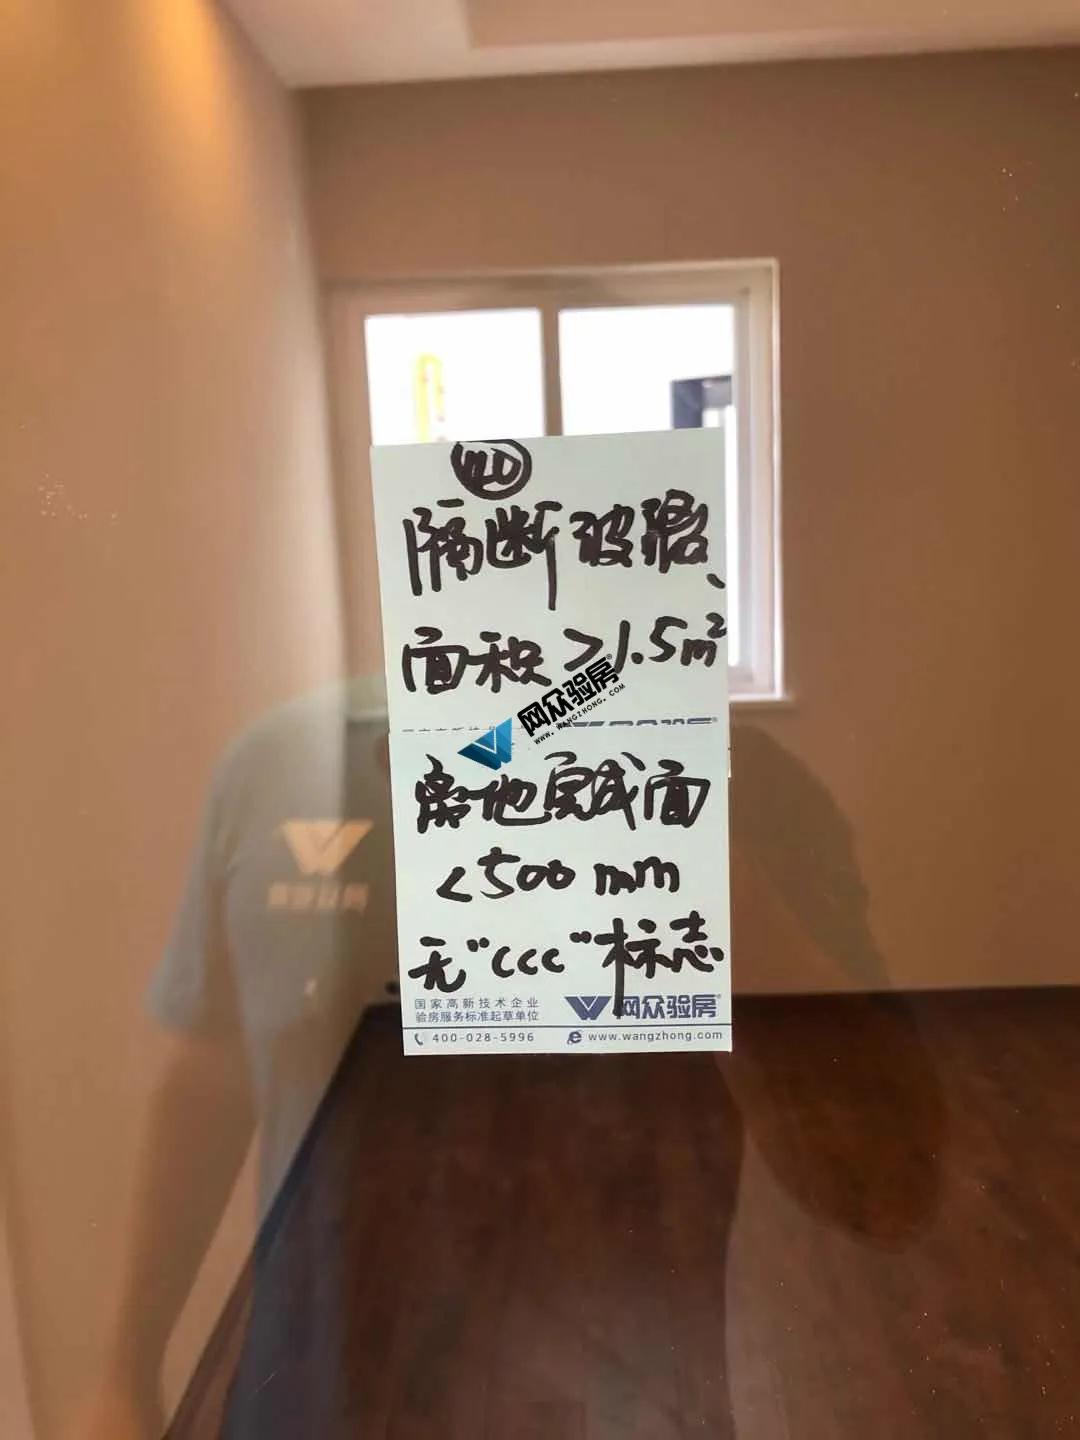 隔断玻璃、
面积>1.5m²
网众验房®
www.WANGZHONG.COM
离地完成面
<500mm
无"CCC"标志
国家高新技术企业
验房服务标准起草单位
网众验房®
400-028-5996
www.wangzhong.com